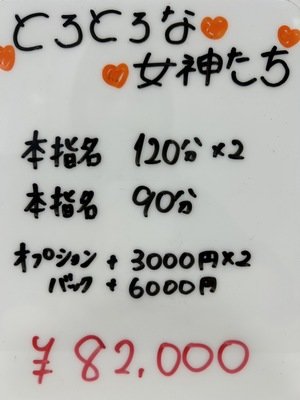 とろとろな
女神たち
本指名 120分×2
本指名 90分
オプション + 3000円×2
バック + 6000円
¥82.000